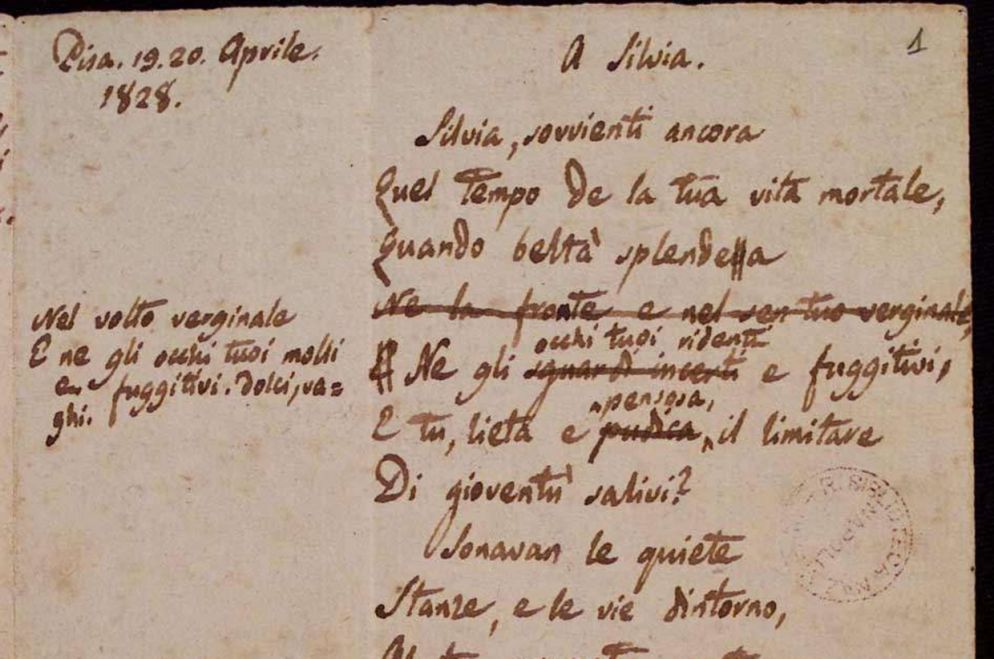 Pisa. 19. 20. Aprile.
1828.
A Silvia.
1
Silvia, sovvienti ancora
Quel tempo de la tua vita mortale,
Quando beltà splendea
Ne la fronte e nel sen tuo verginale,
occhi tuoi ridenti
Ne gli sguardi incerti e fuggitivi,
pensosa,
E tu, lieta e pudica, il limitare
Di gioventù salivi?
Sonavan le quiete
Stanze, e le vie dintorno,
Nel volto verginale
E ne gli occhi tuoi molli
e fuggitivi. dolci, va=
ghi.